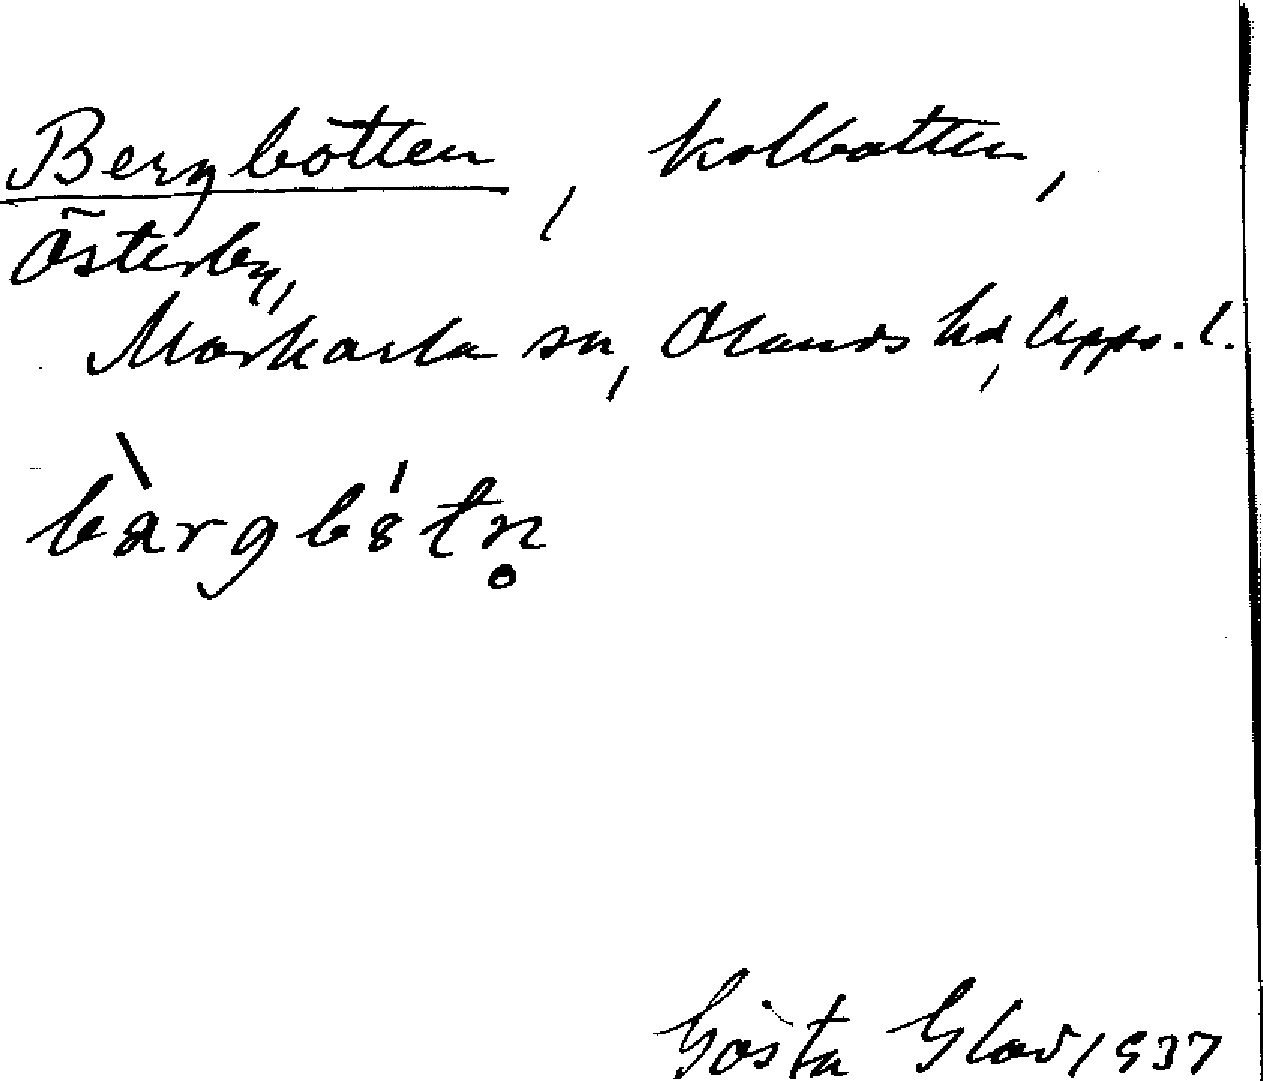 Bergbotten, kolbotten,
Österby,
Morkarla sn, Olands hd, Upps. l.
bàrgbótn̥
Gösta Glad 1937